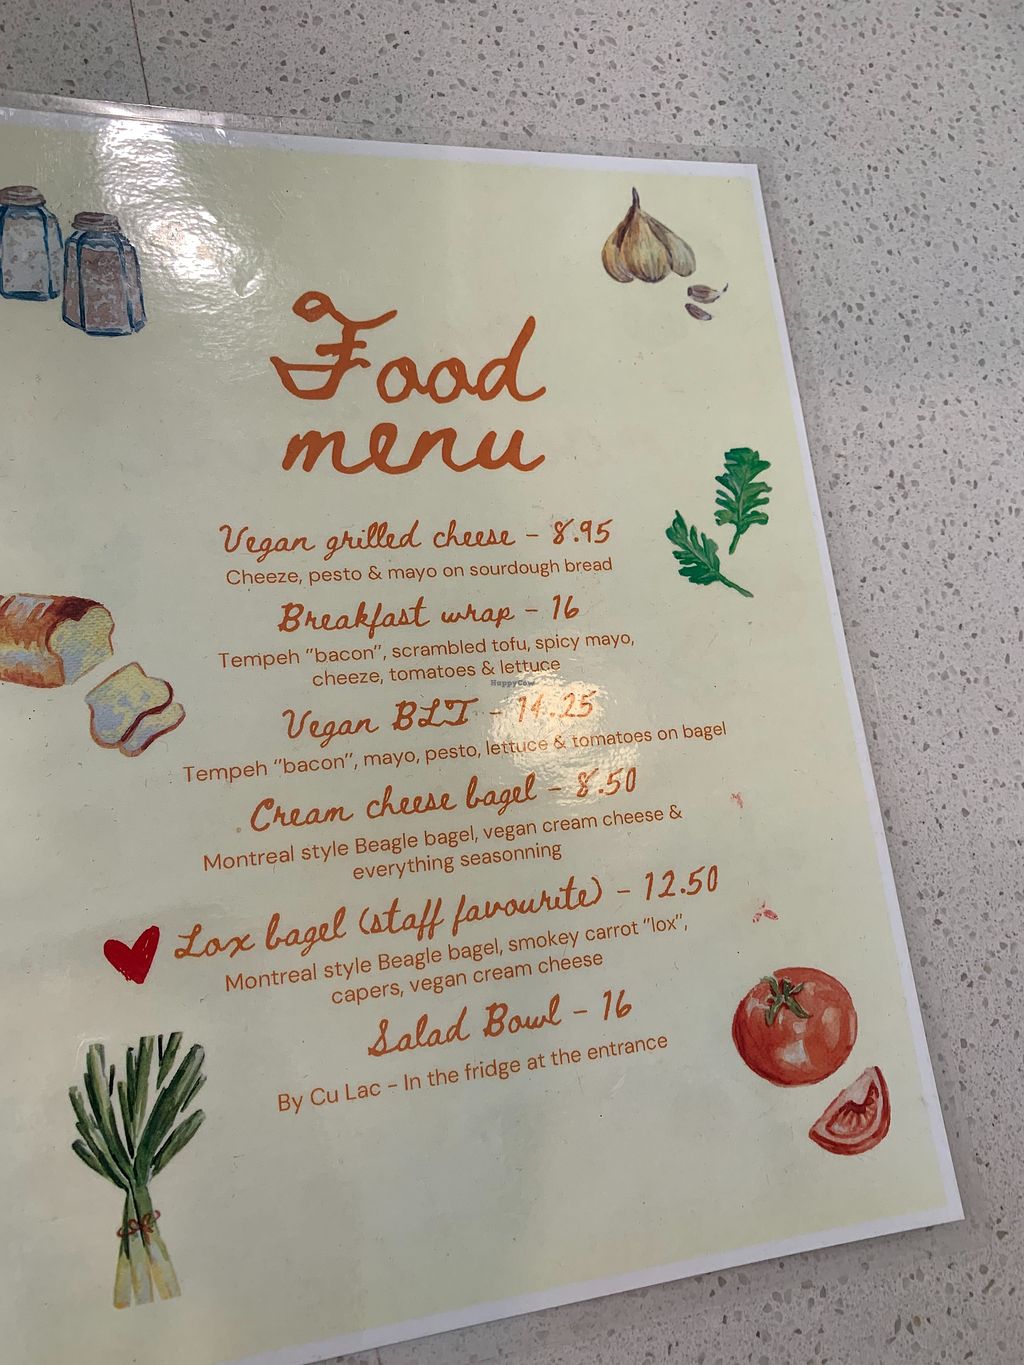 Food
menu
Vegan grilled cheese - 8.95
Cheeze, pesto & mayo on sourdough bread
Breakfast wrap - 16
Tempeh "bacon", scrambled tofu, spicy mayo,
cheeze, tomatoes & lettuce
HappyCow
Vegan BLT - 14.25
Tempeh "bacon", mayo, pesto, lettuce & tomatoes on bagel
Cream cheese bagel - 8.50
Montreal style Beagle bagel, vegan cream cheese &
everything seasonning
Lox bagel (staff favourite) - 12.50
Montreal style Beagle bagel, smokey carrot "lox",
capers, vegan cream cheese
Salad Bowl - 16
By Cu Lac - In the fridge at the entrance